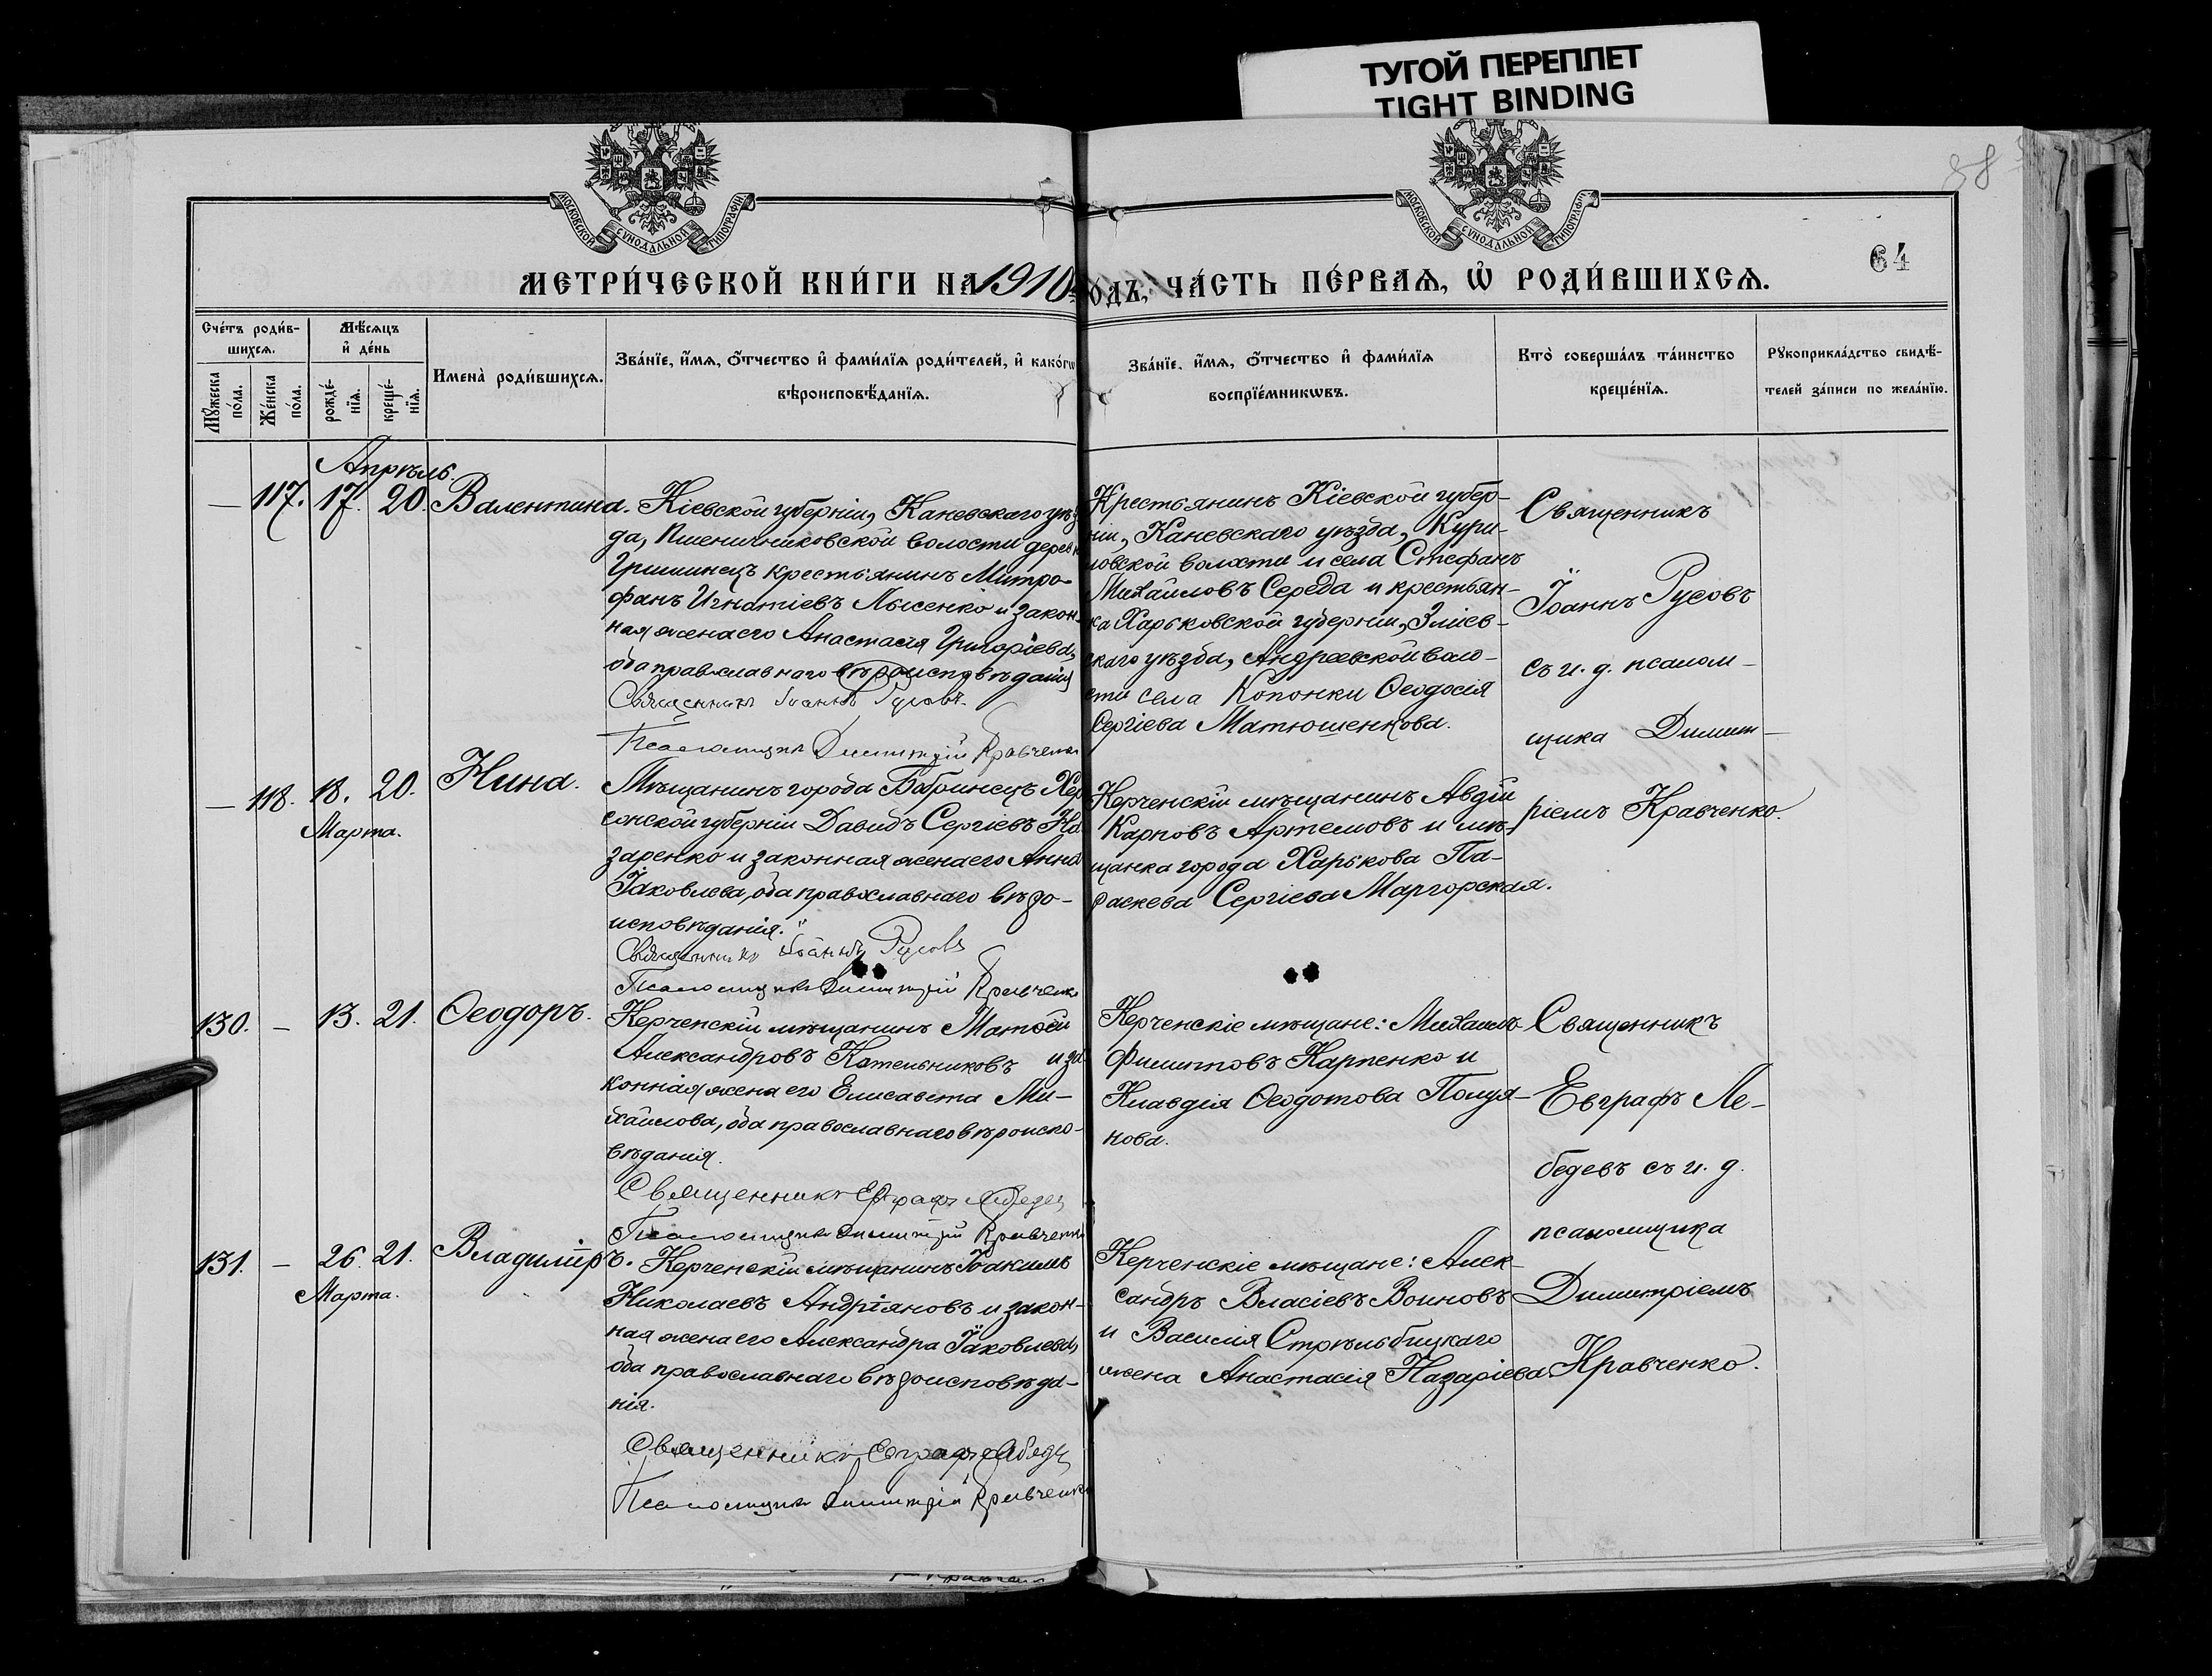 ТУГОЙ ПЕРЕПЛЕТ
TIGHT BINDING
МОСКОВСКОЙ СѴНОДАЛЬНОЙ ТИПОГРАФІИ
МОСКОВСКОЙ СѴНОДАЛЬНОЙ ТИПОГРАФІИ
88
64
МЕТРИ́ЧЕСКОЙ КНИ́ГИ НА 1910 ОДЪ, ЧА́СТЬ ПЕ́РВАѦ, Ѡ҆ РОДИ́ВШИХСѦ.
Сче́тъ роди́в-
шихсѧ.
Мѣ́сѧцъ
и҆ де́нь
Мꙋ́жеска
по́ла.
Же́нска
по́ла.
рожде́-
нїѧ.
креще́-
нїѧ.
Имена̀ роди́вшихсѧ.
Зва́нїе, и҆́мѧ, ѻ҆́тчество и҆ фами́лїѧ роди́телей, и҆ како́гѡ
вѣроисповѣ́данїѧ.
Зва́нїе, и҆́мѧ, ѻ҆́тчество и҆ фами́лїѧ
воспрїе́мникѡвъ.
Кто̀ соверша́лъ та́инство
креще́нїѧ.
Рꙋкоприкла́дство свидѣ́-
телей за́писи по жела́нїю.
Апрѣль.
— 117. 17. 20. Валентина.
Кіевской губерніи, Каневскаго уѣз
да, Пшеничниковской волости дерев
Гришинецъ крестьянинъ Митро-
фанъ Игнатіевъ Лысенко и закон-
ная жена его Анастасія Григоріева,
оба православнаго вѣроисповѣданія
Священникъ Іоаннъ Русовъ.
Псаломщикъ Димитрій Кравченко
Крестьянинъ Кіевской губер-
ніи, Каневскаго уѣзда, Кури-
ловской волости и села Стефанъ
Михайловъ Середа и крестьян-
ка Харьковской губерніи, Зміев-
скаго уѣзда, Андреевской воло-
сти села Копонки Ѳеодосія
Сергіева Матюшенкова.
Священникъ
Іоаннъ Русовъ
съ и. д. псалом-
щика Димит-
ріемъ Кравченко.
— 118. 18. 20. Нина.
Марта.
Мѣщанинъ города Бобринецъ Хер
сонской губерніи Давидъ Сергіевъ На
заренко и законная жена его Анна
Іаковлева, оба православнаго вѣро-
исповѣданія.
Священникъ Іоаннъ Русовъ
Псаломщикъ Димитрій Кравченко
Керченскій мѣщанинъ Авдій
Карповъ Артемовъ и мѣ-
щанка города Харькова Па-
раскева Сергіева Маргорская.
130. — 13. 21. Ѳеодоръ.
Керченскій мѣщанинъ Матѳей
Александровъ Котельниковъ и за
конная жена его Елисавета Ми-
хайлова, оба православнаго вѣроиспо-
вѣданія.
Священникъ Евграфъ Лебедев
Псаломщикъ Димитрій Кравченко
Керченскіе мѣщане: Михаилъ
Филипповъ Карпенко и
Клавдія Ѳеодотова Полуя-
нова.
Священникъ
Евграфъ Ле-
бедевъ съ и. д.
псаломщика
Димитріемъ
Кравченко.
131. — 26. 21. Владиміръ.
Марта.
Керченскій мѣщанинъ Іоакимъ
Николаевъ Андріяновъ и закон-
ная жена его Александра Іаковлева,
оба православнаго вѣроисповѣда-
нія.
Священникъ Евграфъ Лебедев
Псаломщикъ Димитрій Кравченко
Керченскіе мѣщане: Алек-
сандръ Власіевъ Воиновъ
и Василія Стрѣльбицкаго
жена Анастасія Назаріева